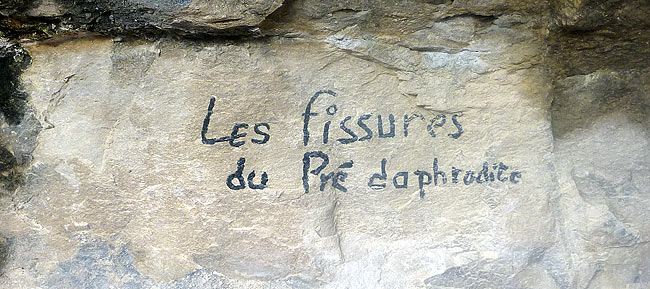 Les fissures
du Pré daphrodite